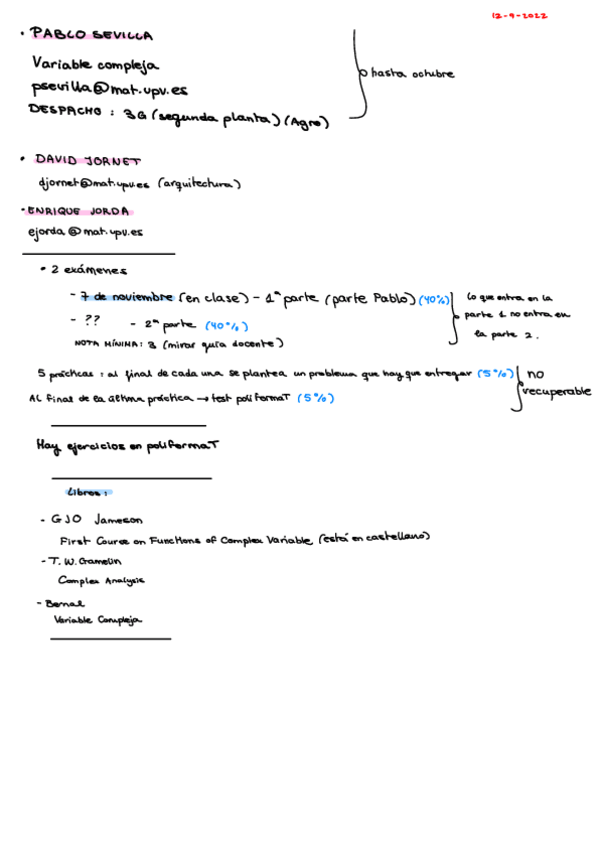 12-9-2022
• PABLO SEVILLA
Variable compleja
psevilla@mat.upv.es
hasta octubre
DESPACHO : 3G (segunda planta) (Agro)
• DAVID JORNET
djornet@mat.upv.es (arquitectura)
• ENRIQUE JORDA
ejorda@mat.upv.es
• 2 exámenes
- 7 de noviembre (en clase) - 1ª parte (parte Pablo) (40%)
- ?? - 2ª parte (40%)
NOTA MÍNIMA: 3 (mirar guía docente)
lo que entra en la
parte 1 no entra en
la parte 2.
5 prácticas : al final de cada una se plantea un problema que hay que entregar (5%)
AL final de la última práctica → test poliformaT (5%)
no
recuperable
Hay ejercicios en poliformaT
Libros:
- GJO Jameson
First Course on Functions of Complex Variable (está en castellano)
- T.W. Gamelin
Complex Analysis
- Bernal
Variable Compleja